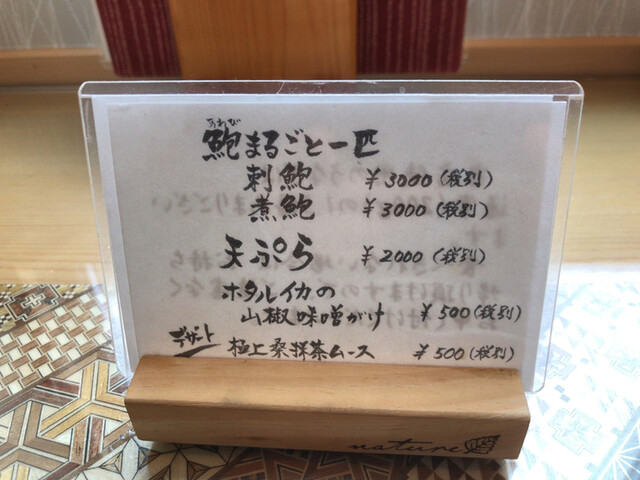 あわび
鮑まるごと一匹
刺鮑 ¥3000(税別)
煮鮑 ¥3000(税別)
天ぷら ¥2000(税別)
ホタルイカの
山椒味噌がけ ¥500(税別)
デザート 極上桑抹茶ムース ¥500(税別)
nature